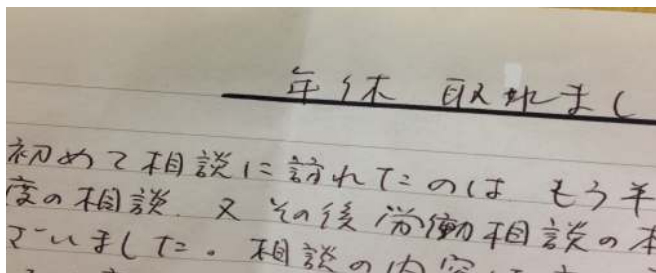 年休 取れまし
初めて相談に訪れたのは もう半
度の相談 又 その後 労働相談の本
ていました。相談の内容は